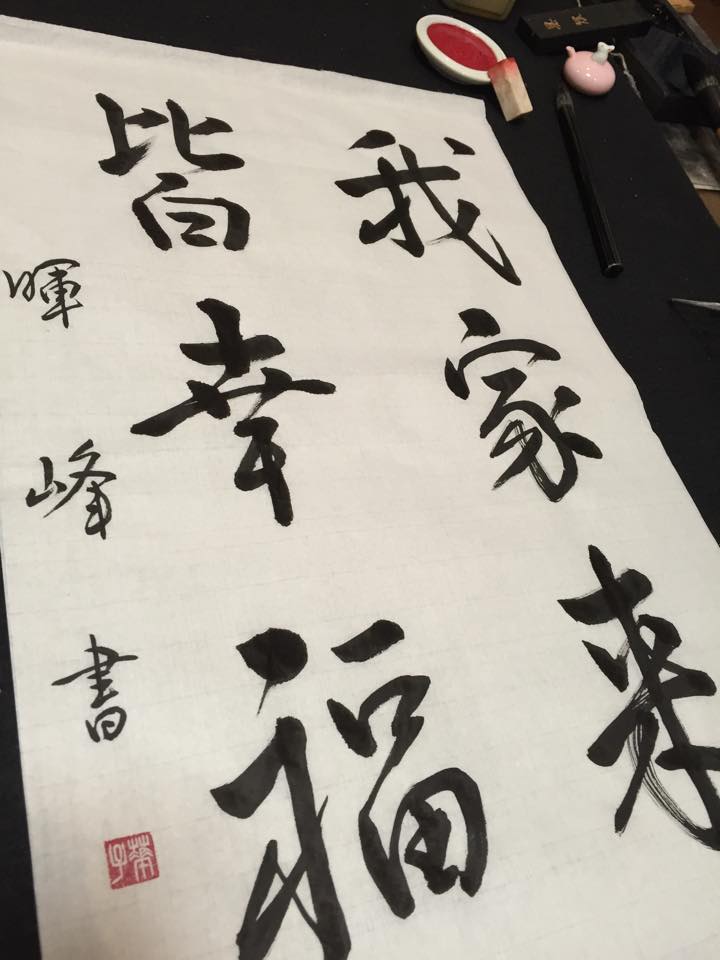 我家来
皆幸福
暉峰書